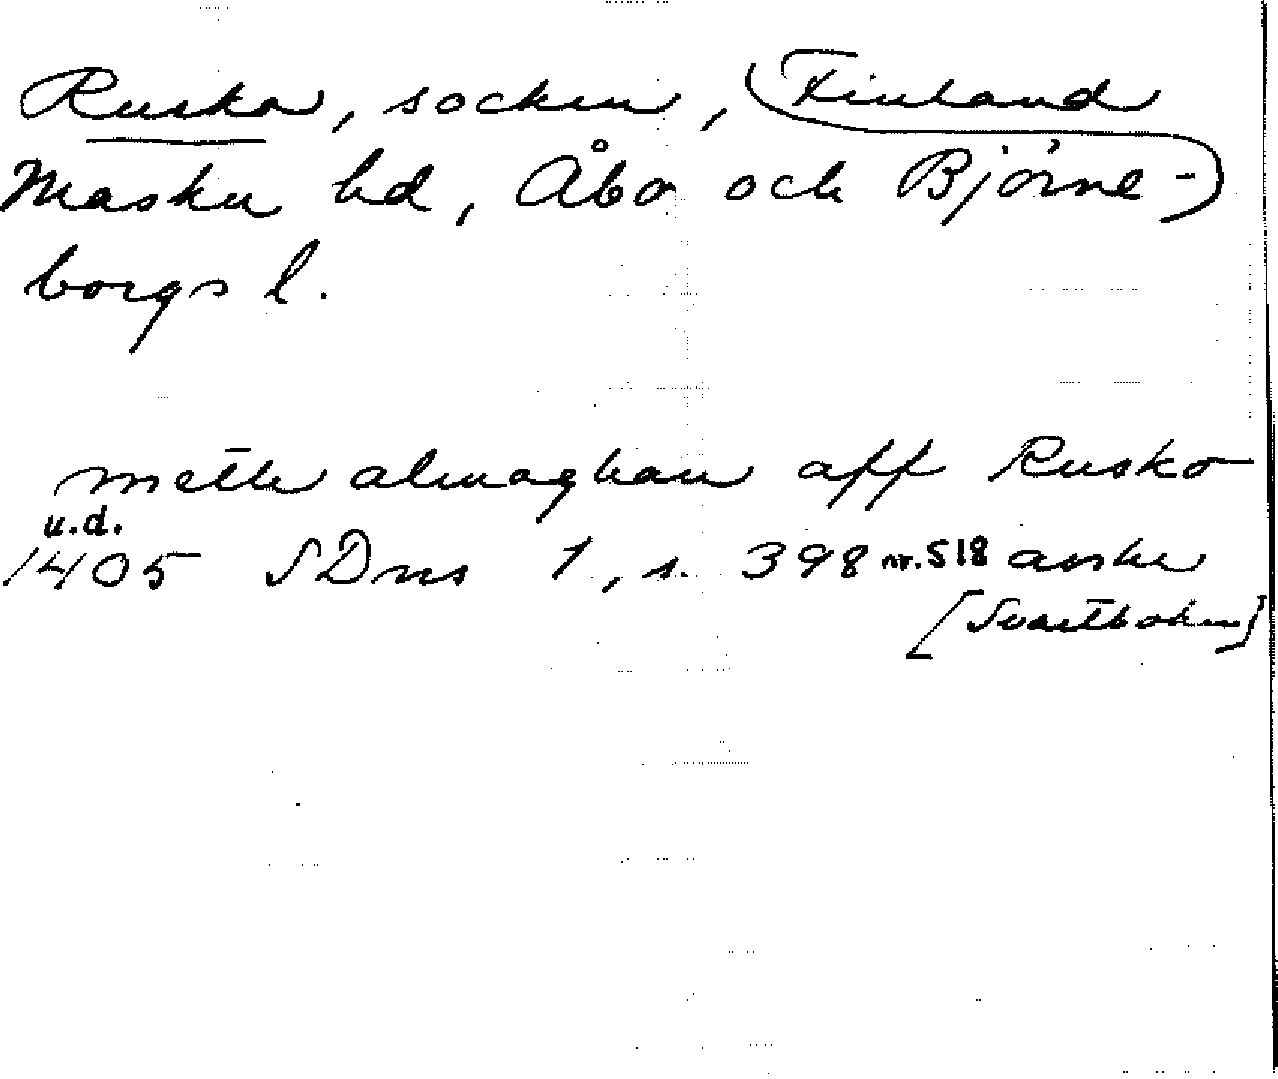 Rusko, socken, Finland
Masku hd, Åbo och Björne-
borgs l.
mett almoghan aff Rusko
u.d.
1405 SDns 1, s. 398 nr. 518 avskr
[Svartboken]